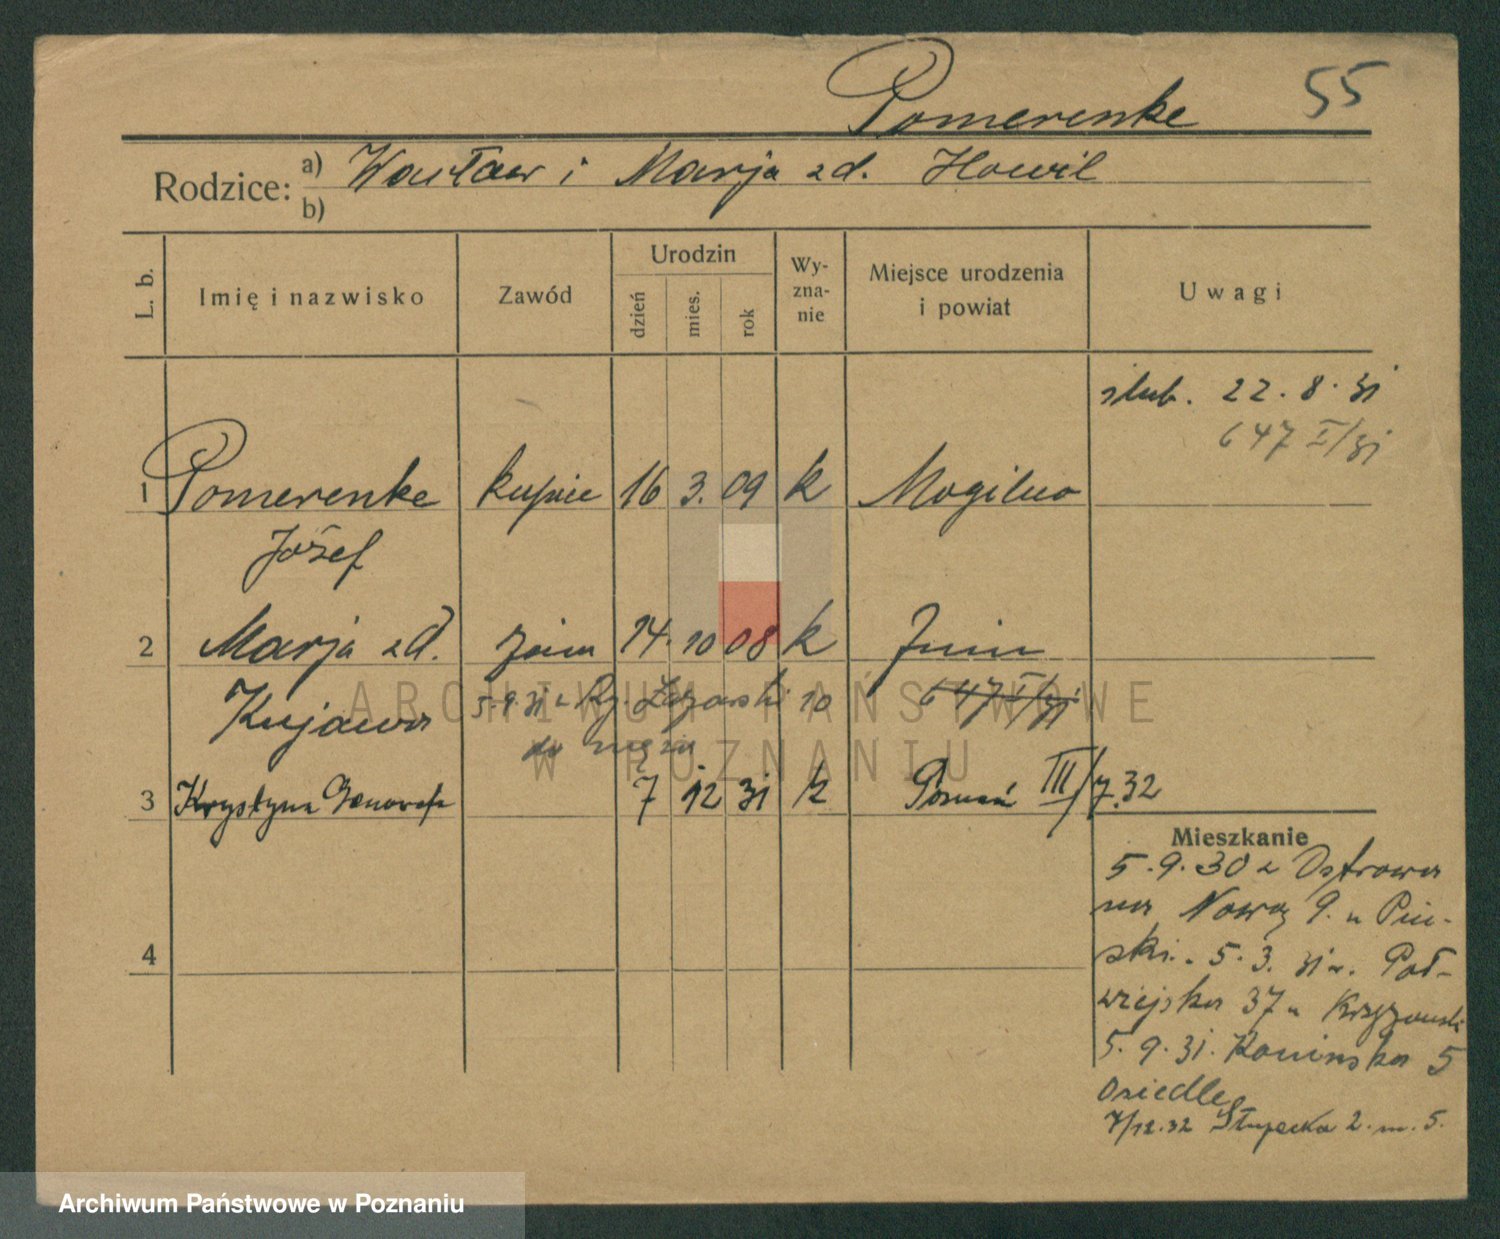 Pomerenke 55
Rodzice: a) Wacław i Marja zd. Howil
b)
L. b. Imię i nazwisko Zawód Urodzin dzień mies. rok Wy-zna-nie Miejsce urodzenia i powiat Uwagi
ślub. 22. 8. 31
647 I/31
1 Pomerenke kupiec 16 3. 09 k Mogilno
Józef
2 Marja zd. żona 14. 10 08 k Żnin
Kujawa 5.9.31 z 10 647 I/31
do męża
3 Krystyna Genowefa 7 12 31 k Poznań III/7.32
Mieszkanie
5.9.30 z Ostrowa
na Nową 9. u Piń-
ski. 5.3.31 Pół-
wiejska 37 u Krzyżański
5.9.31. Konińska 5
4
Osiedle
7/12.32 Słupecka 2. m. 5.
ARCHIWUM PAŃSTWOWE
W POZNANIU
Archiwum Państwowe w Poznaniu